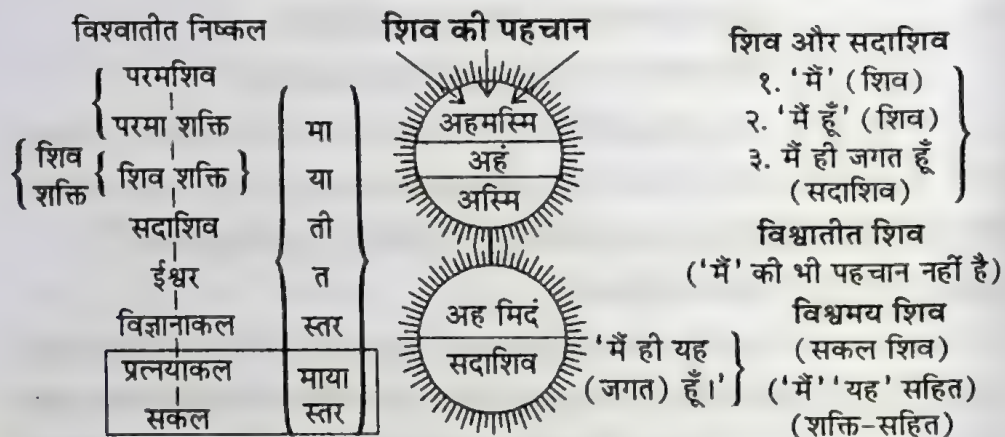 विश्वातीत निष्कल
परमशिव
परमा शक्ति
शिव
शक्ति
शिव शक्ति
सदाशिव
ईश्वर
विज्ञानाकल
प्रत्नयाकल
सकल
मा
या
ती
त
स्तर
माया
स्तर
शिव की पहचान
अहमस्मि
अहं
अस्मि
अह मिदं
सदाशिव
'मैं ही यह
(जगत) हूँ।'
शिव और सदाशिव
१. 'मैं' (शिव)
२. 'मैं हूँ' (शिव)
३. मैं ही जगत हूँ
(सदाशिव)
विश्वातीत शिव
('मैं' की भी पहचान नहीं है)
विश्वमय शिव
(सकल शिव)
('मैं' 'यह' सहित)
(शक्ति-सहित)